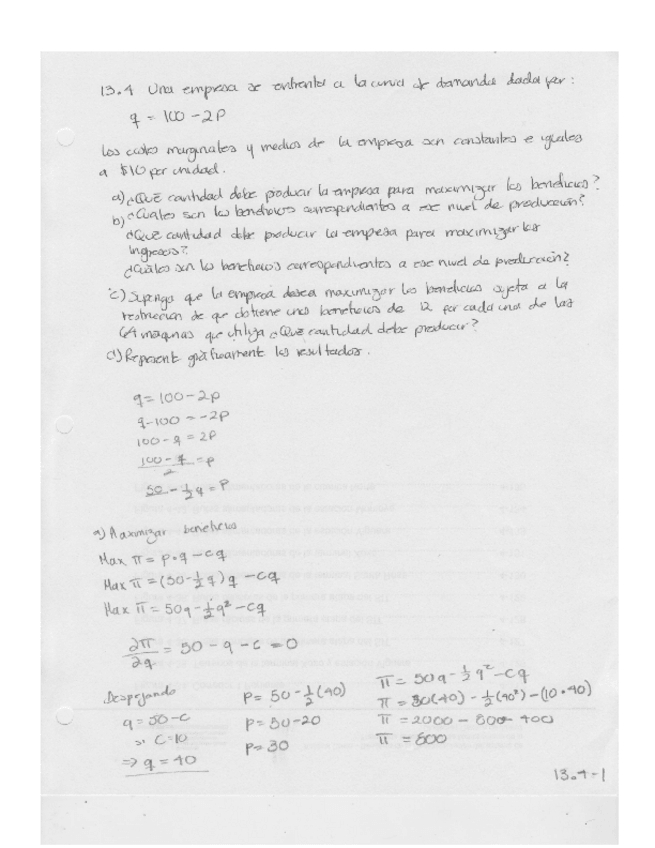 13.4 Una empresa se enfrenta a la curva de demanda dada por:
q = 100 - 2P
Los costos marginales y medios de la empresa son constantes e iguales
a $10 por unidad.
a) ¿Qué cantidad debe producir la empresa para maximizar los beneficios?
¿Cuáles son los beneficios correspondientes a ese nivel de producción?
b) ¿Qué cantidad debe producir la empresa para maximizar los
ingresos?
¿Cuáles son los beneficios correspondientes a ese nivel de producción?
c) Suponga que la empresa desea maximizar los beneficios sujeta a la
restricción de que obtiene unos beneficios de 12 por cada una de las
64 maquinas que utiliza ¿Qué cantidad debe producir?
d) Represente gráficamente los resultados.
q = 100 - 2P
q - 100 = -2P
100 - q = 2P
100 - q / 2 = P
50 - 1/2 q = P
a) Maximizar beneficios
Max π = p·q - cq
Max π = (50 - 1/2 q) q - cq
Max π = 50q - 1/2 q² - cq
∂π/∂q = 50 - q - c = 0
Despejando
q = 50 - c
si C = 10
⇒ q = 40
P = 50 - 1/2 (40)
P = 50 - 20
P = 30
π = 50q - 1/2 q² - cq
π = 50(40) - 1/2 (40²) - (10·40)
π = 2000 - 800 - 400
π = 800
13.4-1